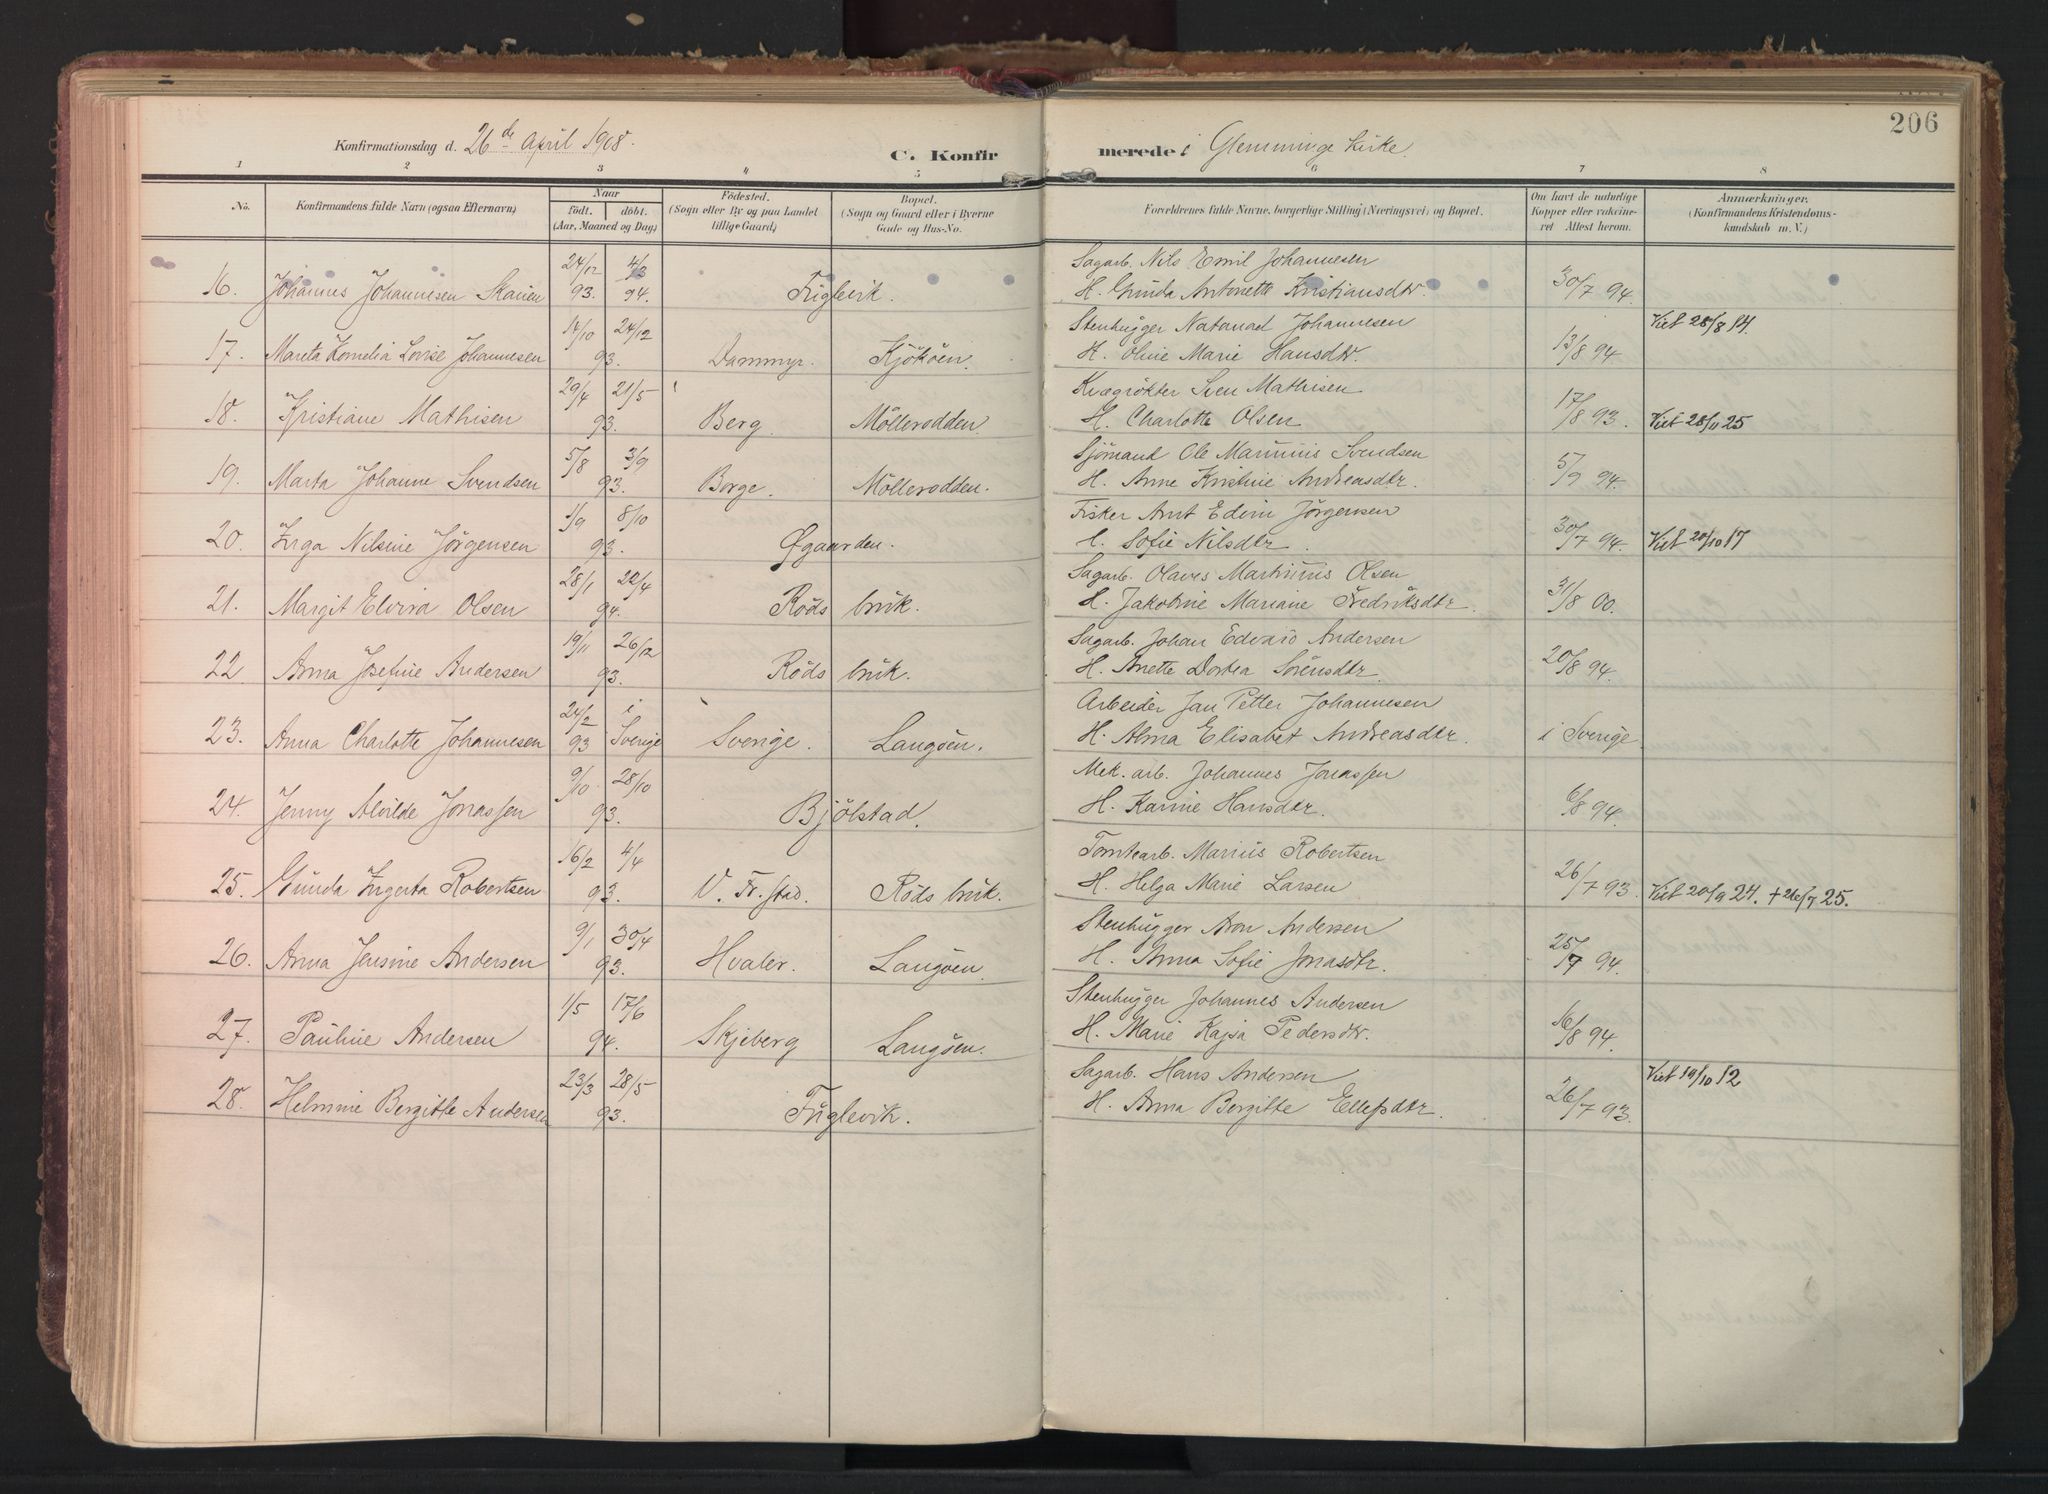 206
Konfirmationsdag d. 26de April 1908.
C. Konfirmerede i Glemminge Kirke.
1 2 3 4 5 6 7 8
No. Konfirmandens fulde Navn (ogsaa Efternavn) Naar født. døbt. (Aar, Maaned og Dag) Födested. (Sogn eller By og paa Landet tillige Gaard) Bopæl. (Sogn og Gaard eller i Byerne Gade og Hus-No. Forældrenes fulde Navne, borgerlige Stilling (Næringsvei) og Bopæl. Om havt de naturlige Kopper eller vakcineret Attest herom. Anmærkninger. (Konfirmandens Kristendomskundskab m. V.)
16. Johannes Johannesen Skauen 24/12 93. 4/3 94. Fuglevik. Sagarb. Nils Emil Johannesen
H. Gunda Antonette Kristiansdtr. 30/7 94.
17. Mareta Kornelia Lovise Johannesen 14/10 24/12 93. Dammyr. Kjøköen. Stenhugger Natanael Johannesen Viet 28/8 14.
H. Oline Marie Hansdtr. 13/8 94
18. Kristiane Mathisen 29/4 21/5 93. Berg. Möllerodden Kvægrökter Sven Mathisen
H. Charlotte Olsen 17/8 93. Viet 28/11 25
19. Marta Johanne Svendsen 5/8 3/9 93. Borge. Möllerodden. Sjömand Ole Marinius Svendsen
H. Anne Kristine Andreasdtr. 5/9 94.
20. Inga Nilsine Jörgensen 1/9 8/10 93. Øgaarden. Fisker Arnt Edvin Jörgensen
L. Sofie Nilsdtr. 30/7 94. Viet 20/10 17
21. Margit Elvira Olsen 28/1 22/4 94. Röds bruk. Sagarb. Olaves Martinius Olsen
H. Jakobine Mariane Fredriksdtr. 31/8 00.
22. Anna Josefine Andersen 19/11 26/12 93. Röds bruk. Sagarb. Johan Edvard Andersen
H. Anette Dortea Sörensdtr. 20/8 94.
23. Anna Charlotte Johannesen 24/2 93 i Sverige Sverige. Langöen. Arbeider Jan Petter Johannesen
H. Alma Elisabet Andreasdtr. i Sverige.
24. Jenny Alvilde Jonassen 9/10 28/10 93. Bjölstad. Mek. arb. Johannes Jonassen
H. Karine Hansdtr. 6/8 94.
25. Gunda Ingerta Robertsen 16/2 4/4 93. V. Fr.stad. Röds bruk. Tomtearb. Marius Robertsen
H. Helga Marie Larsen 26/7 93. Viet 20/9 24. + 26/7 25.
26. Anna Jensine Andersen 9/1 30/4 93. Hvaler. Langöen. Stenhugger Aron Andersen
H. Anna Sofie Jonasdtr. 25/7 94.
27. Pauline Andersen 1/5 17/6 94. Skjeberg Langöen. Stenhugger Johannes Andersen
H. Marie Kajsa Pedersdtr. 16/8 94.
28. Helmine Bergitte Andersen 23/3 28/5 93. Fuglevik. Sagarb. Hans Andersen Viet 19/10 12
H. Anna Bergitte Ellefsdtr. 26/7 93.